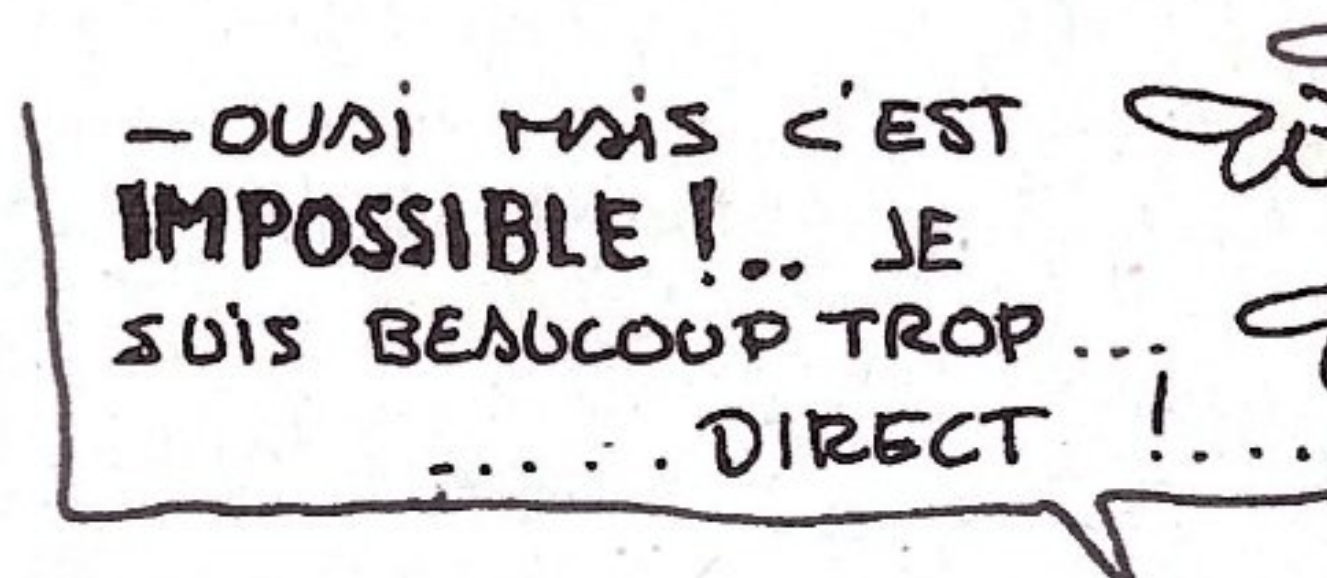 —OUAi MAiS C'EST
IMPOSSIBLE !... JE
SUiS BEAUCOUP TROP ...
...... DIRECT !....